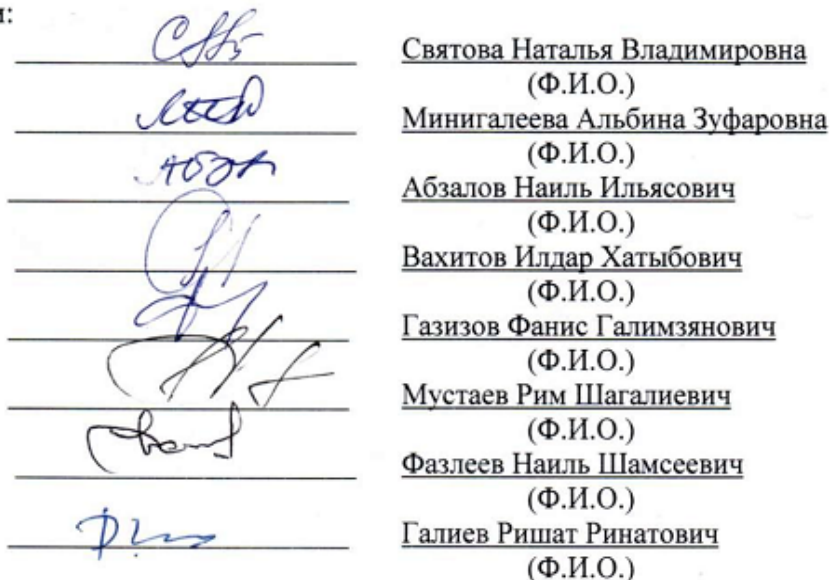 и:
Святова Наталья Владимировна
(Ф.И.О.)
Минигалеева Альбина Зуфаровна
(Ф.И.О.)
Абзалов Наиль Ильясович
(Ф.И.О.)
Вахитов Илдар Хатыбович
(Ф.И.О.)
Газизов Фанис Галимзянович
(Ф.И.О.)
Мустаев Рим Шагалиевич
(Ф.И.О.)
Фазлеев Наиль Шамсеевич
(Ф.И.О.)
Галиев Ришат Ринатович
(Ф.И.О.)